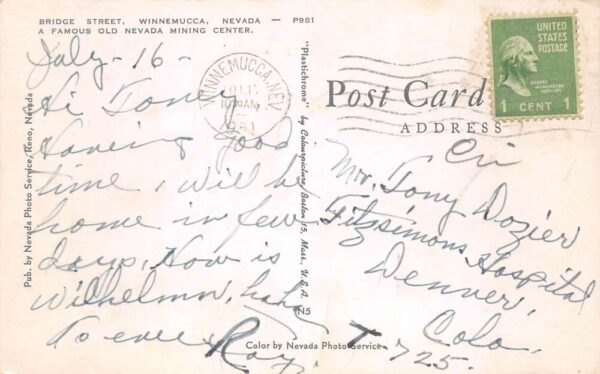 BRIDGE STREET, WINNEMUCCA, NEVADA — P981
A FAMOUS OLD NEVADA MINING CENTER.
July-16-
Hi Tony
Having good
time, will be
home in few
days, How is
Wilhelmn, haha
To ever
Ray
Pub. by Nevada Photo Service, Reno, Nevada
"Plastichrome" by Colourpicture, Boston 15, Mass. U.S.A.
N5
Color by Nevada Photo Service
WINNEMUCCA, NEV.
AM
Post Card
ADDRESS
UNITED
STATES
POSTAGE
1 CENT 1
Mr. Tony Dozier
Fitzsimons Hospital
Denver,
Colo.
T-725.